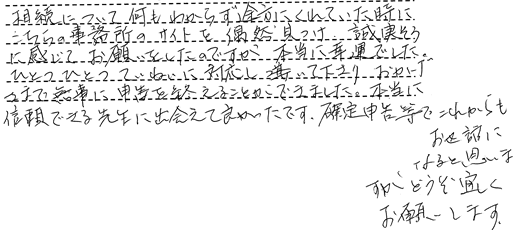 相続について何もわからず途方にくれていた時に
こちらの事務所のサイトを偶然見つけ、誠実そう
に感じてお願いをしたのですが、本当に幸運でした。
ひとつひとつていねいに対応し導いて下さり、おかげ
さまで無事に申告を終えることができました。本当に
信頼できる先生に出会えて良かったです。確定申告等でこれからも
お世話に
なると思いま
すが、どうぞ宜しく
お願いします。